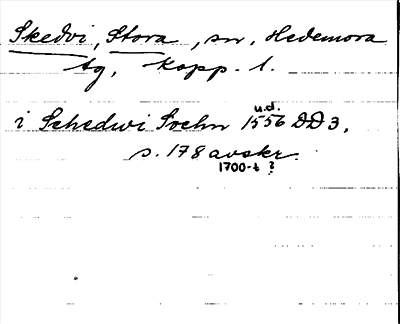 Skedvi, Stora, sn, Hedemora
tg, Kopp. l.
i Schedwi Sochn 1556 u.d. DD 3,
s. 178 avskr.
1700-t ?